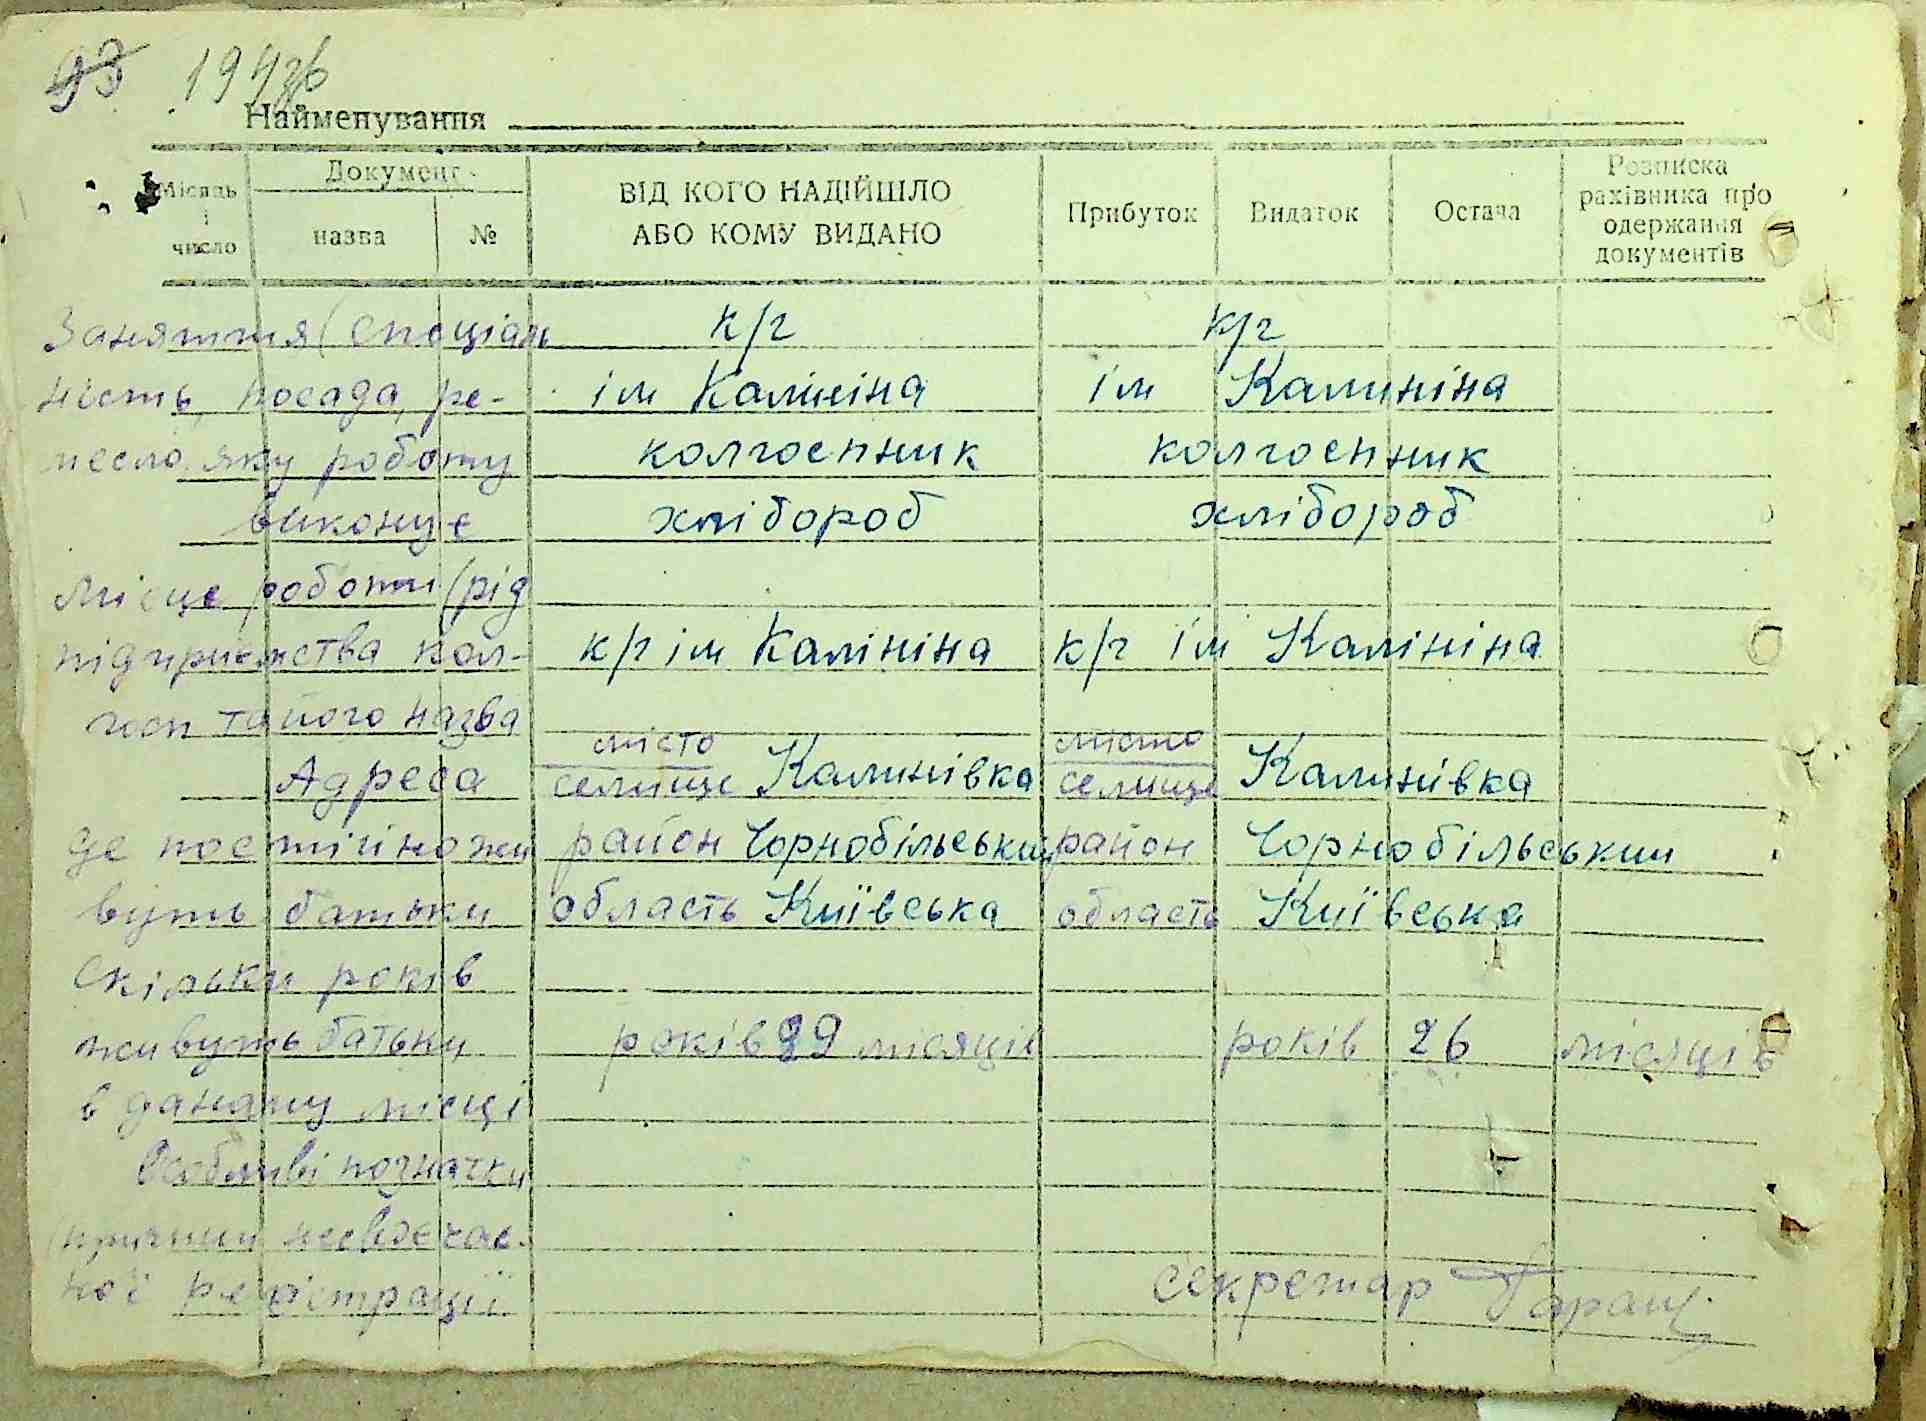 93 194зв
Найменування
Місяць і число Документ назва № ВІД КОГО НАДІЙШЛО АБО КОМУ ВИДАНО Прибуток Видаток Остача Розписка рахівника про одержання документів
Заняття (спеціаль к/г к/г
ність, посада, ре- ім Калініна ім Калиніна
месло яку роботу колгоспник колгоспник
виконує хлібороб хлібороб
Місце роботи (рід
підприємства кол- к/г ім Калініна к/г ім Калініна
госп та його назва
місто место
Адреса селище Калинівка селище Калинівка
де постійно жи район Чорнобільський район Чорнобільський
вуть батьки область Київська область Київська
Скільки років
живуть батьки років 29 місяців років 26 місяців
в даному місці
Особливі позначки
(причини несвоєчас-
ної реєстрації секретар